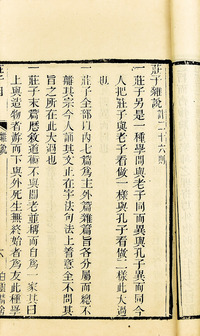 莊子雜說計二十六則
一莊子另是一種學問與老子同而異與孔子異而同今
人把莊子與老子看做一樣與孔子看做兩樣此大過
也
一莊子全部以內七篇為主外篇雜篇旨各分屬而總不
離其宗今人誦其文止在字法句法上著意全不問其
旨之所在此大過也
一莊子末篇歷敘道術不與關老並稱而自為一家其曰
上與造物者遊而下與外死生無終始者為友此種學